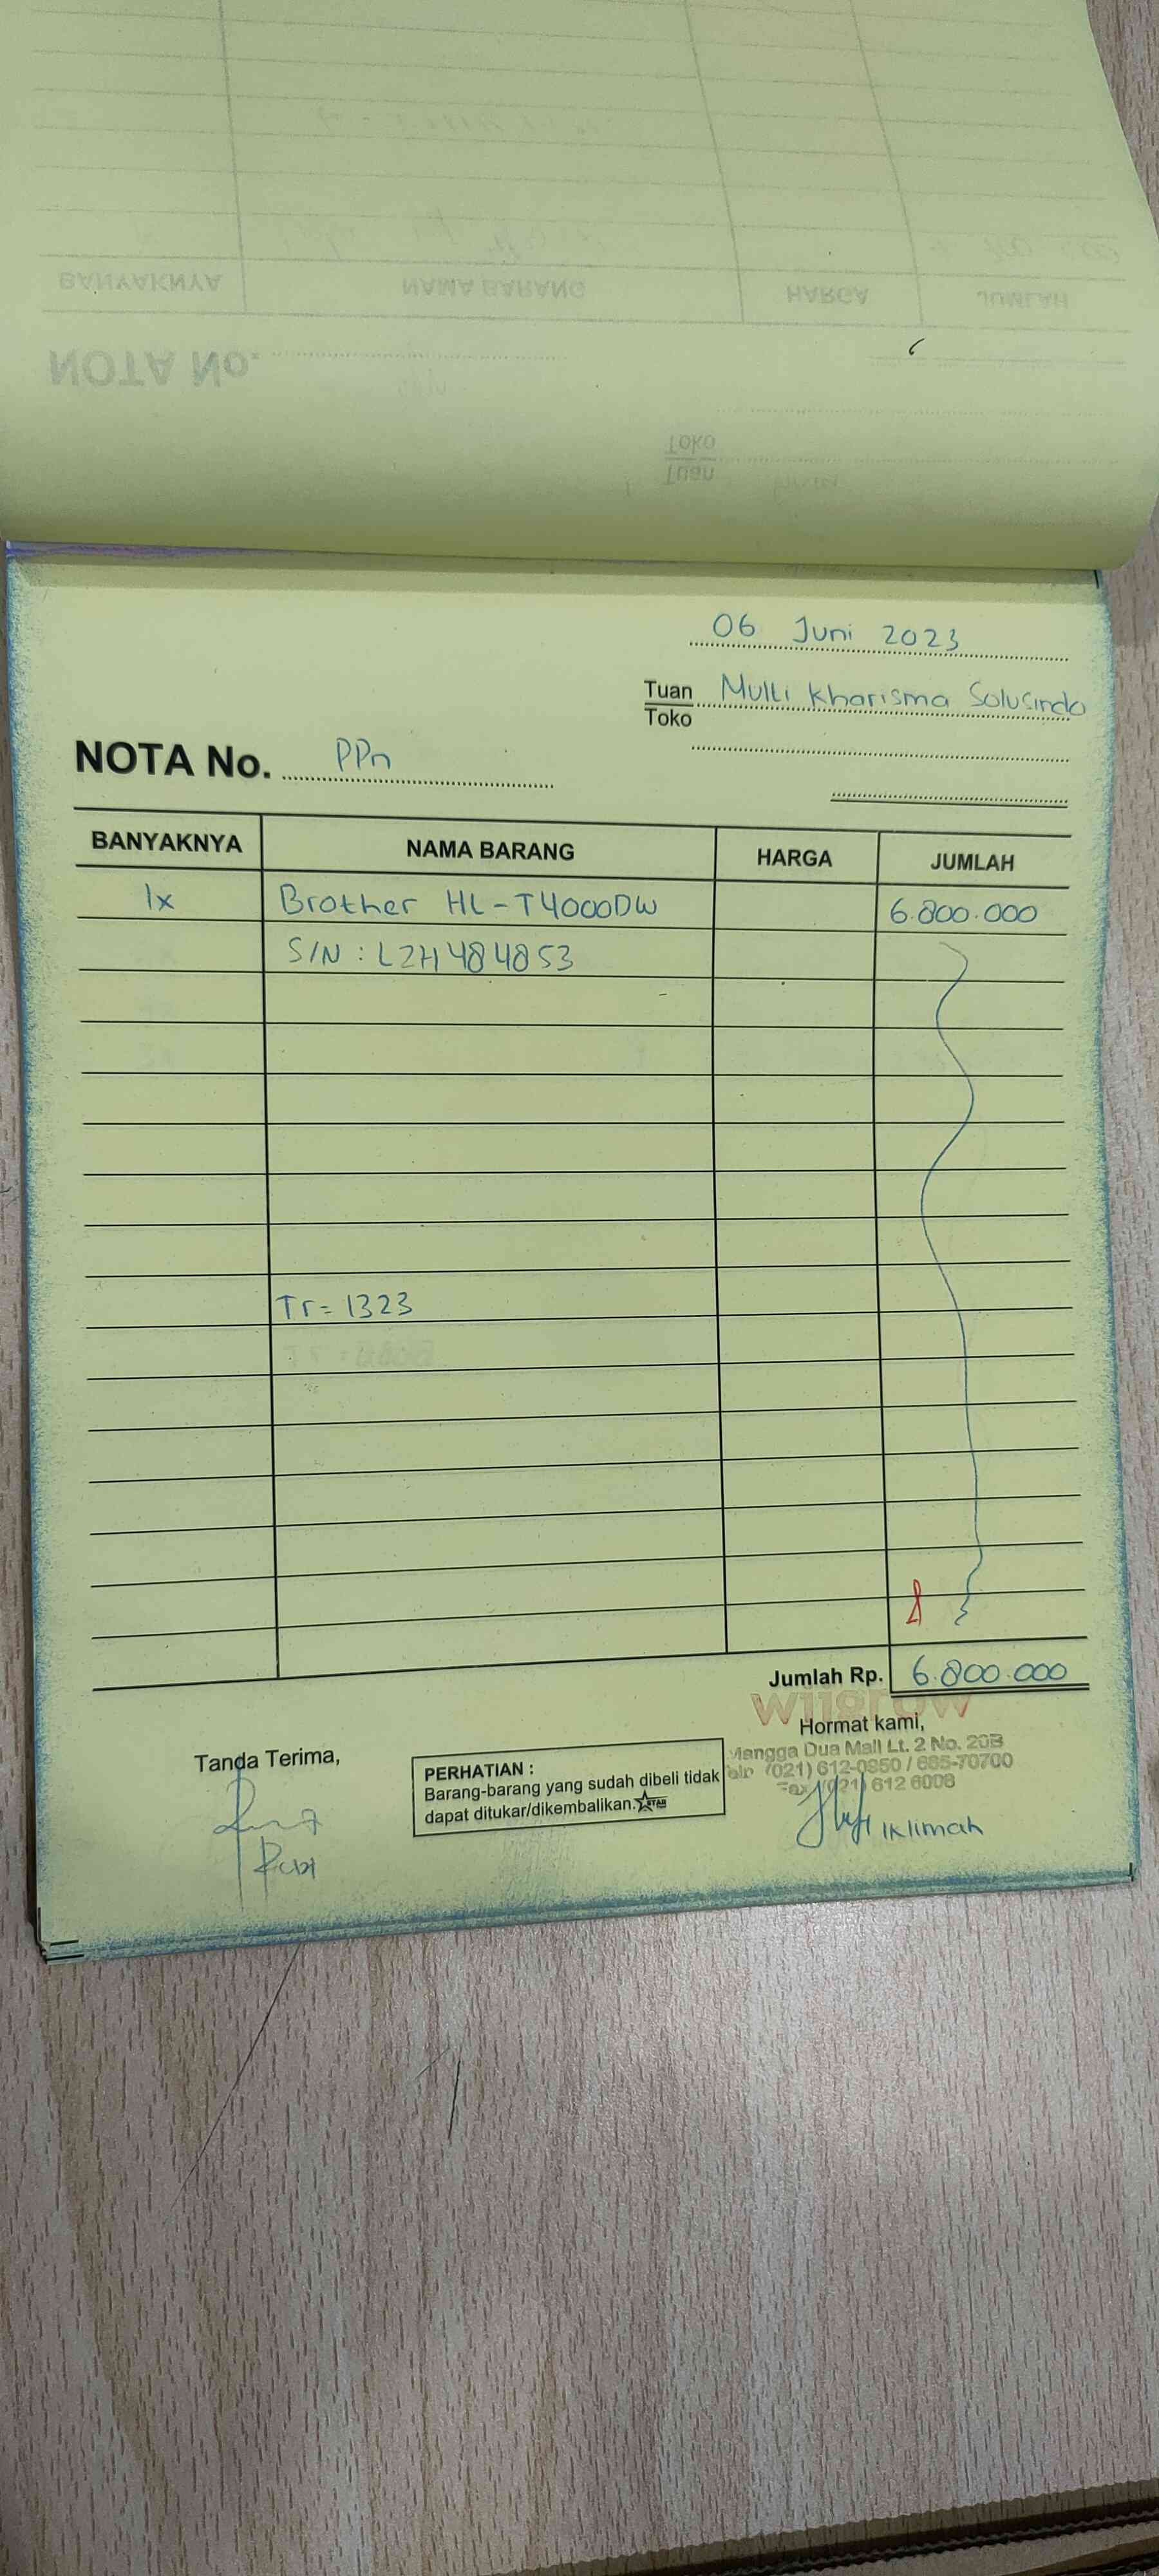 06 Juni 2023
Tuan Multi Kharisma Solusindo
Toko
NOTA No. PPn
BANYAKNYA NAMA BARANG HARGA JUMLAH
1x Brother HL-T4000DW 6.800.000
S/N : LZH484853
Tr = 1323
Jumlah Rp. 6.800.000
wiigrow
Tanda Terima, Hormat kami,
Mangga Dua Mall Lt. 2 No. 20B
Telp (021) 612-0950 / 685-70700
Fax (021) 612 6008
PERHATIAN :
Barang-barang yang sudah dibeli tidak
dapat ditukar/dikembalikan. STAR
Iklimah
NOTA No.
BANYAKNYA NAMA BARANG HARGA JUMLAH
Tuan
Toko